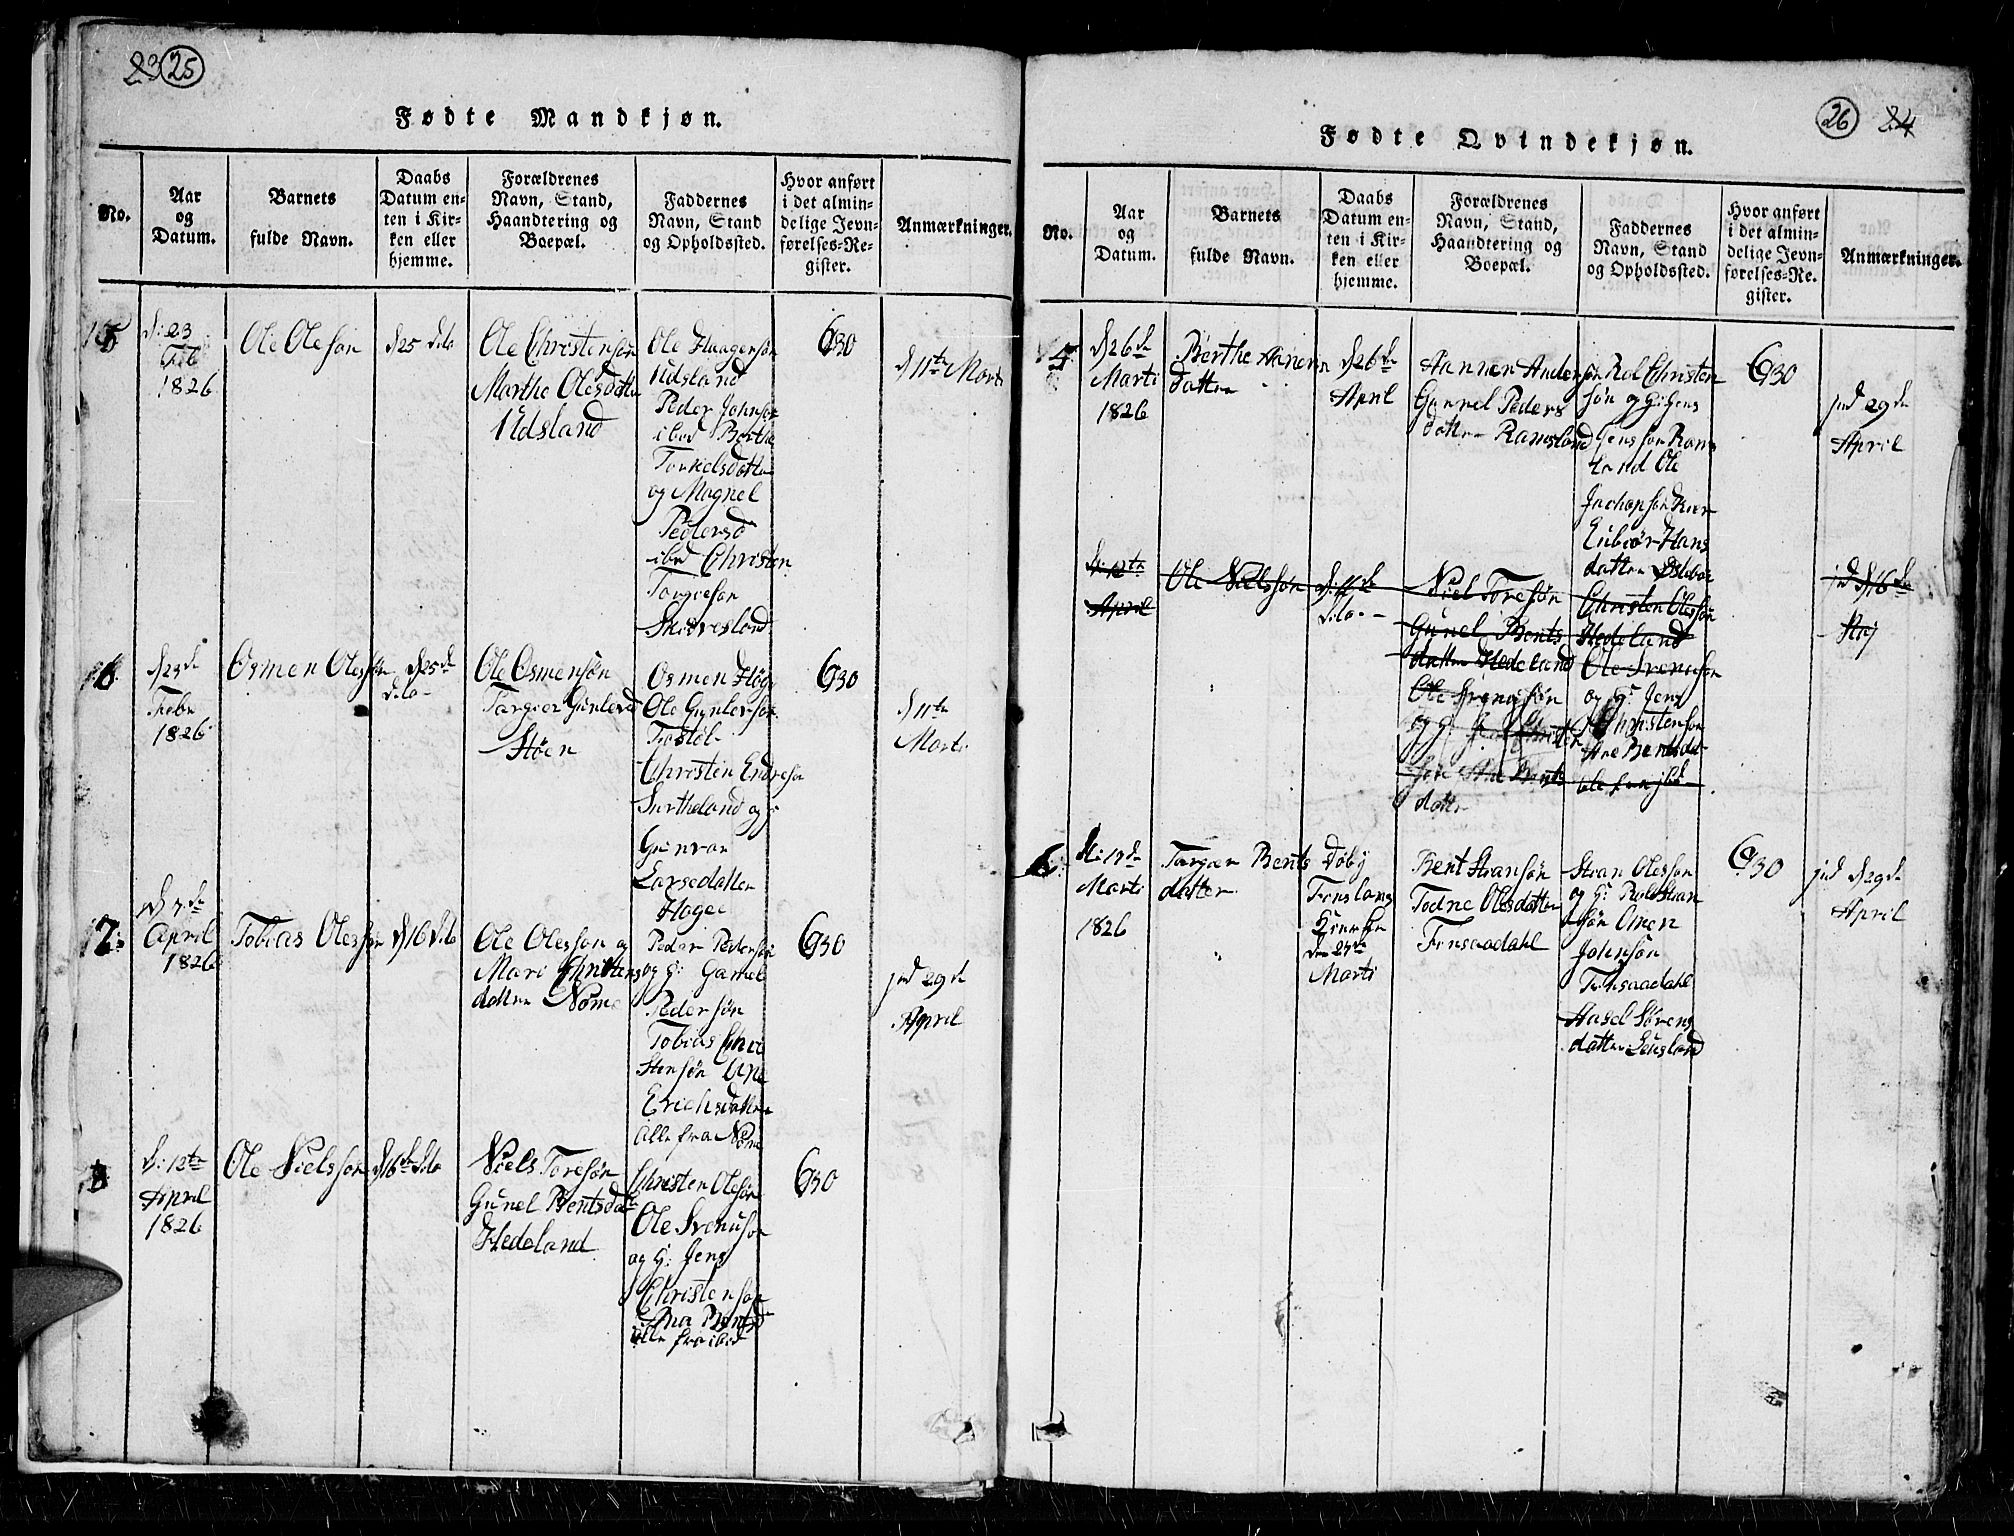 23 25
Fødte Mandkjøn.
No.
Aar
og
Datum.
Barnets
fulde Navn.
Daabs
Datum en-
ten i Kir-
ken eller
hjemme.
Forældrenes
Navn, Stand,
Haandtering og
Boepæl.
Faddernes
Navn, Stand
og Opholdssted.
Hvor anført
i det almin-
delige Jevn-
førelses-Re-
gister.
Anmærkninger.
5
d: 23
Feb
1826
Ole Olesøn
d 25 dito
Ole Christensøn
Marthe Olesdatter
Udsland
Ole Haagensøn
Udsland
Peder Johnsøn
ibid Berthe
Torkelsdatter
og Magnel
Pedersd
ibid Christen
Torgiesøn
Skeiresland
630
d 11te Marti
6
d 23de
Febr
1826
Osmen Olessøn
d 25de
dito
Ole Osmensøn
Torgier Gunlersd
Støen
Osmen Høge
Ole Gunlersøn
Frostøl
Christen Endresøn
Surtheland og
Gunvor
Larsedatter
Hagee
630
d 11te
Marti
7
d 7de
April
1826
Tobias Olessøn
d 16 dito
Ole Olessøn og
Mari Christens
datter Nome
Peder Pedersøn
og g: Gamel
Pedersøn
Tobias Chri
stensøn Ane
Erichsdatter
alle fra Nome
630
ind 29de
April
8
d: 12te
April
1826
Ole Nielssøn
d 16de dito
Niels Toresøn
Gunel Bentsdat
Hedeland
Christen Olesøn
Ole Svenusøn
og g: Jens
Christensøn
Ane Bentsd
alle fra ibid
630
26 24
Fødte Qvindekjøn.
No.
Aar
og
Datum.
Barnets
fulde Navn.
Daabs
Datum en-
ten i Kir-
ken eller
hjemme.
Forældrenes
Navn, Stand,
Haandtering og
Boepæl.
Faddernes
Navn, Stand
og Opholdssted.
Hvor anført
i det almin-
delige Jevn-
førelses-Re-
gister.
Anmærkninger.
5
d 26de
Marti
1826
Berthe Hannen
datter
d 26de
April
Hannen Andersøn
Gunnel Peders
datter Ramsland
Rol Christen
søn og g: Jens
Jenssøn Rams
land Ole
Jachopsøn
Hans
datter
630
ind 29de
April
d: 12te
April
Ole Nielssøn
d: 16de
dito
Niel Toresøn
Gunel Bents
datter Hedeland
Ole Svenusøn
og g:
Ane Bents
datter
Christen Olessøn
Hedeland
Ole Svenusøn
og g: Jens
Christensøn
Ane Bentsda
alle fra ibid
ind d 16de
Maj
6
d: 13de
Marti
1826
Torgier Bents
datter
Døbt
Finslans
Kirken
den 27de
Marti
Bent Stransøn
Todne Olesdatter
Finsaadahl
Stran Olessøn
og g: Rol Stran
søn Omen
Johnsøn
Finsaadahl
Aasel Sørens
datter
630
ind d 29de
April